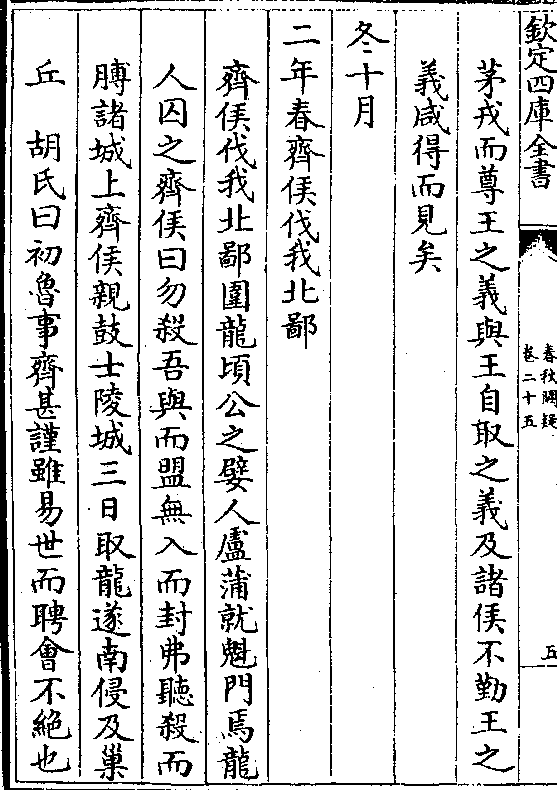 欽定四庫全書
春秋闕疑
卷二十五
五
茅戎而尊王之義與王自取之義及諸侯不勤王之
義咸得而見矣
冬十月
二年春齊侯伐我北鄙
齊侯伐我北鄙圍龍頃公之嬖人盧蒲就魁門焉龍
人囚之齊侯曰勿殺吾與而盟無入而封弗聽殺而
膊諸城上齊侯親鼓士陵城三日取龍遂南侵及巢
丘　胡氏曰初魯事齊甚謹雖易世而聘會不絕也